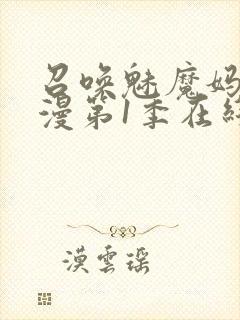 召唤魅魔妈
漫第1季在线
漠雲瑶